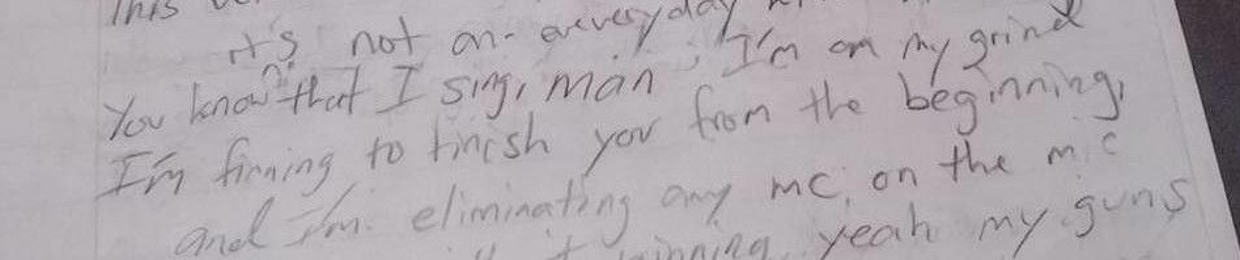 This
it's not an everyday
You know that I sing, man, I'm on my grind
I'm finning to finish you from the beginning,
and I'm eliminating any mc, on the mic
yeah my guns